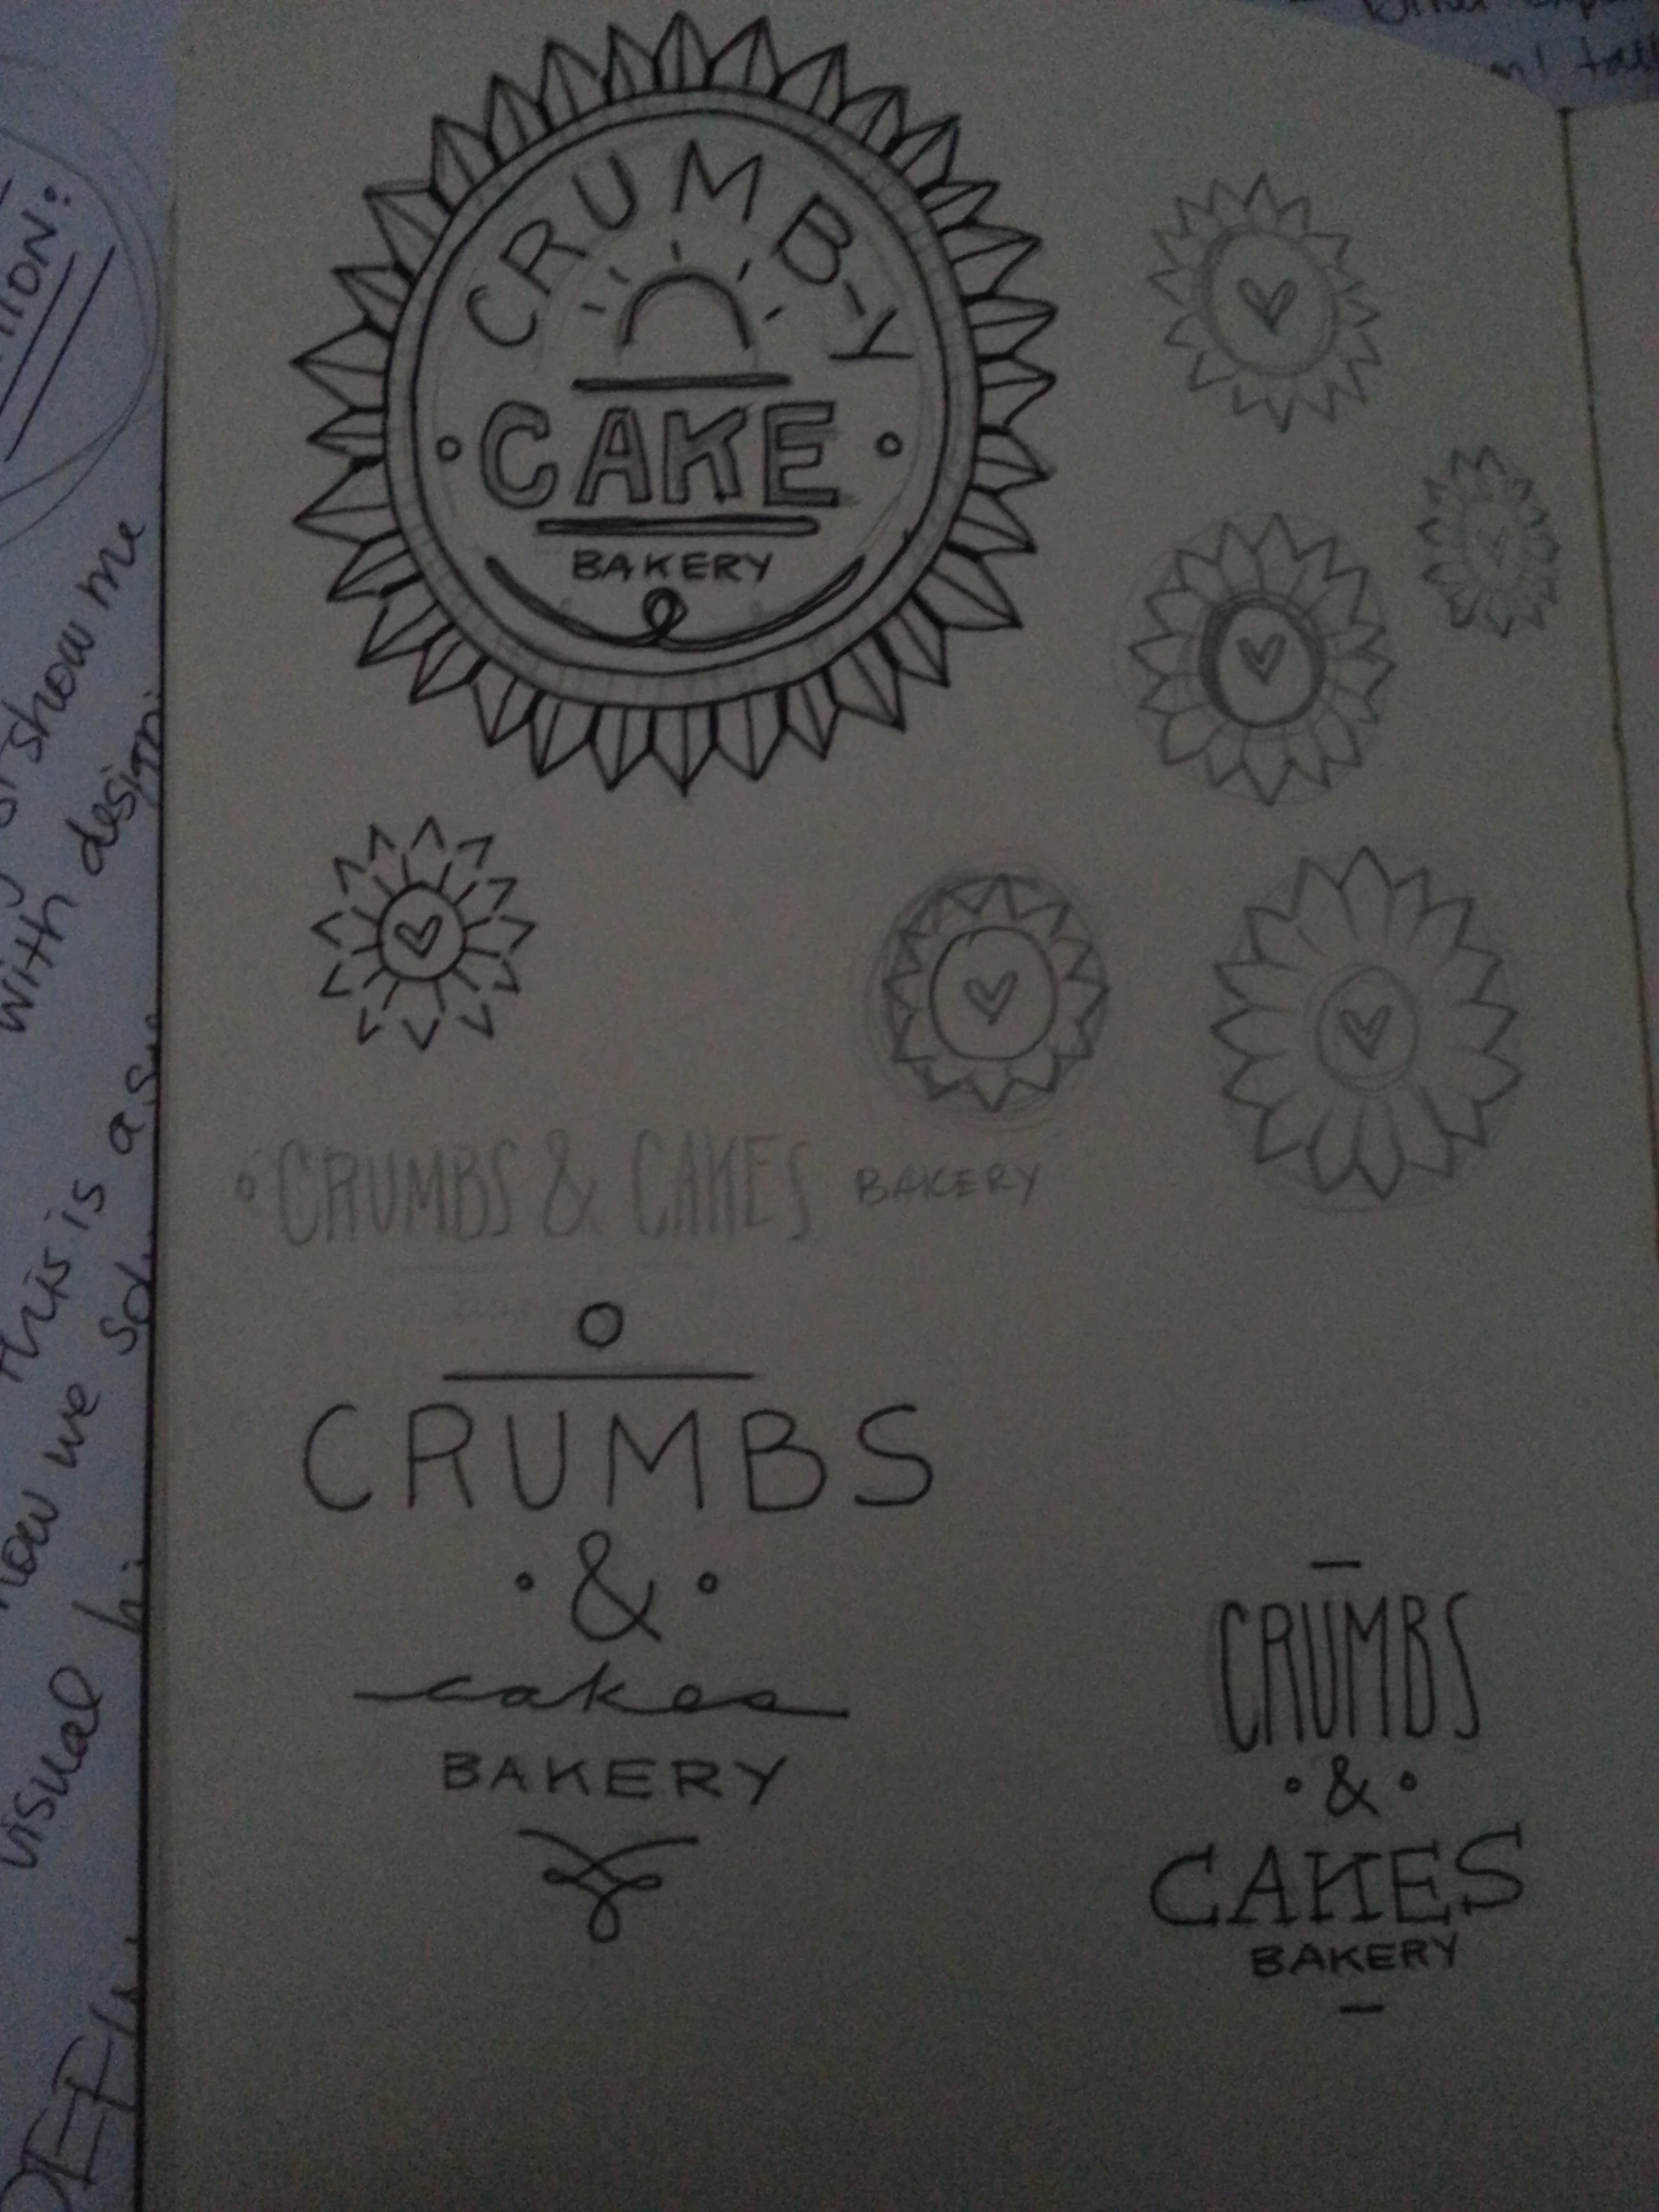 CRUMB-Y
CAKE
BAKERY
CRUMBS & CAKES BAKERY
CRUMBS
&
cakes
BAKERY
CRUMBS
&
CAKES
BAKERY
show me
with
this is
how we
visual